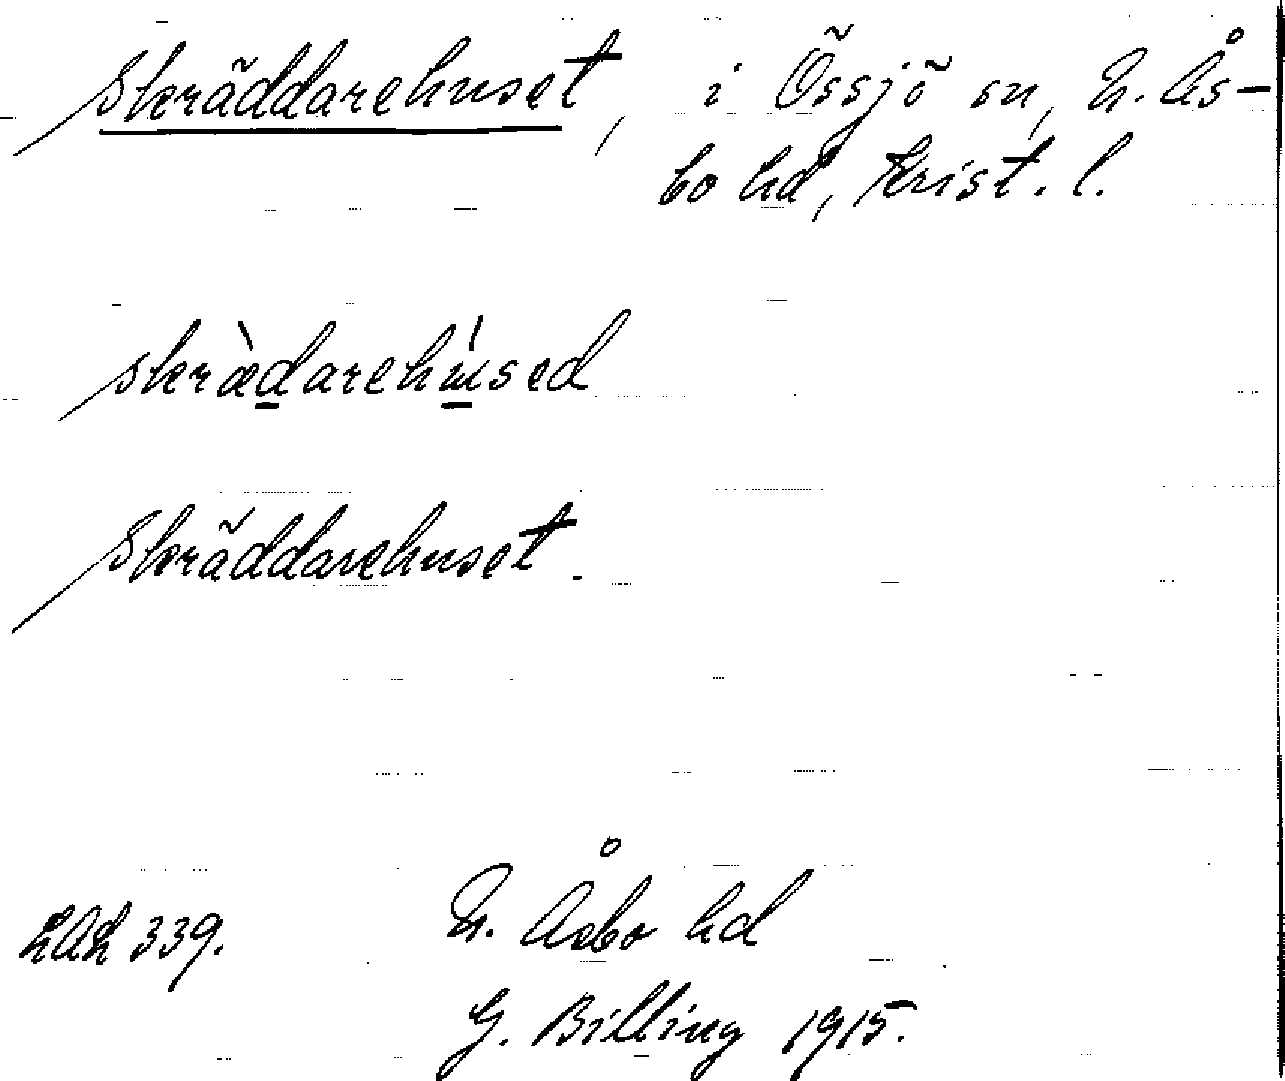 Skräddarehuset, i Össjö sn, N. Ås-
bo hd, Krist. l.
skrædarehused
Skräddarehuset.
LAL 339.
N. Åsbo hd
G. Billing 1915.